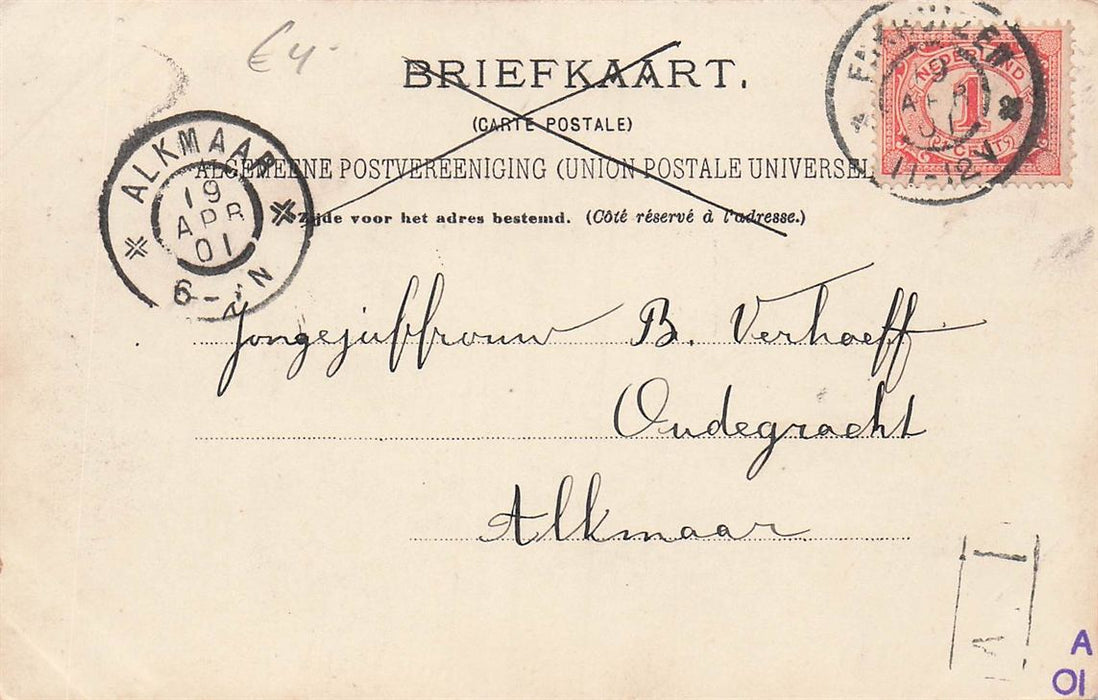 €4-
BRIEFKAART.
(CARTE POSTALE)
ALGEMEENE POSTVEREENIGING (UNION POSTALE UNIVERSEL
Zijde voor het adres bestemd. (Côté réservé à l'adresse.)
ENKHUIZEN
9
APR
01
11-12V
NEDERLAND
1
CENT
ALKMAAR
19
APR
01
6- N
Jongejuffrouw B. Verhoeff
Oudegracht
Alkmaar
A
A
01